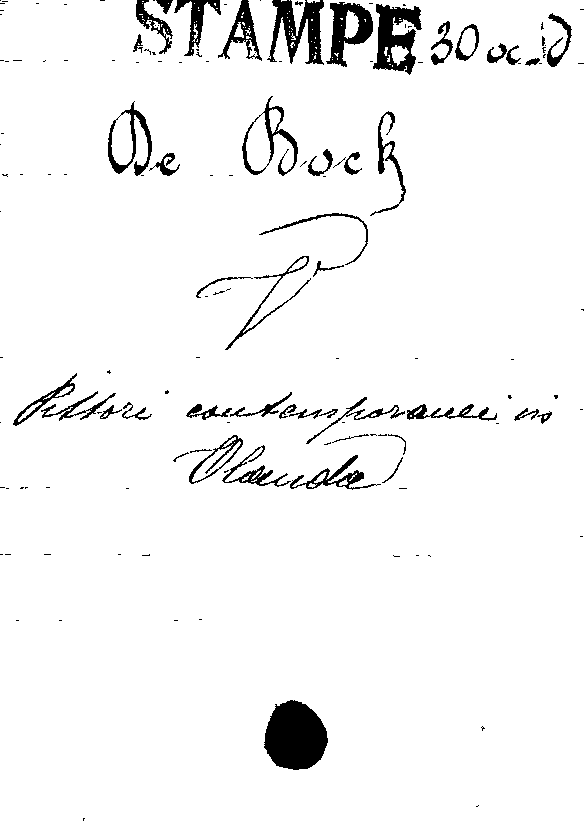 STAMPE 30
De Bock
V
Pittori contemporanei in
Olanda